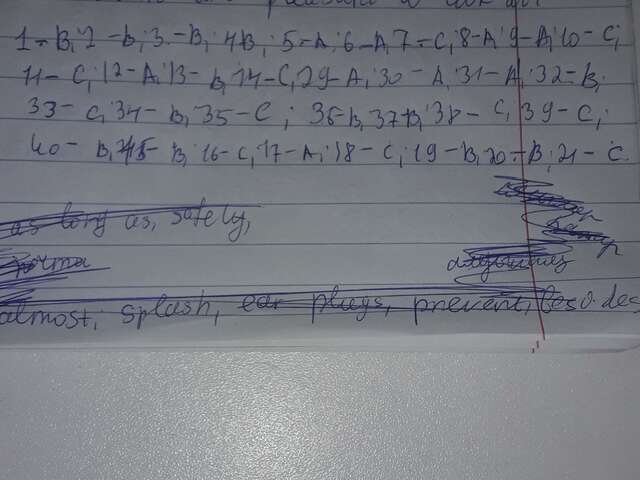 1-B; 2-B; 3-B; 4B; 5-A; 6-A, 7-C; 8-A; 9-A; 10-C;
11-C; 12-A; 13-B, 14-C, 29-A; 30-A; 31-A; 32-B;
33-C; 34-B; 35-C; 36-B, 37-B; 38-C; 39-C;
40-B, 15-B; 16-C; 17-A; 18-C; 19-B; 20-B; 21-C.
as long as, safely,
almost, splash, ear plugs, prevent,